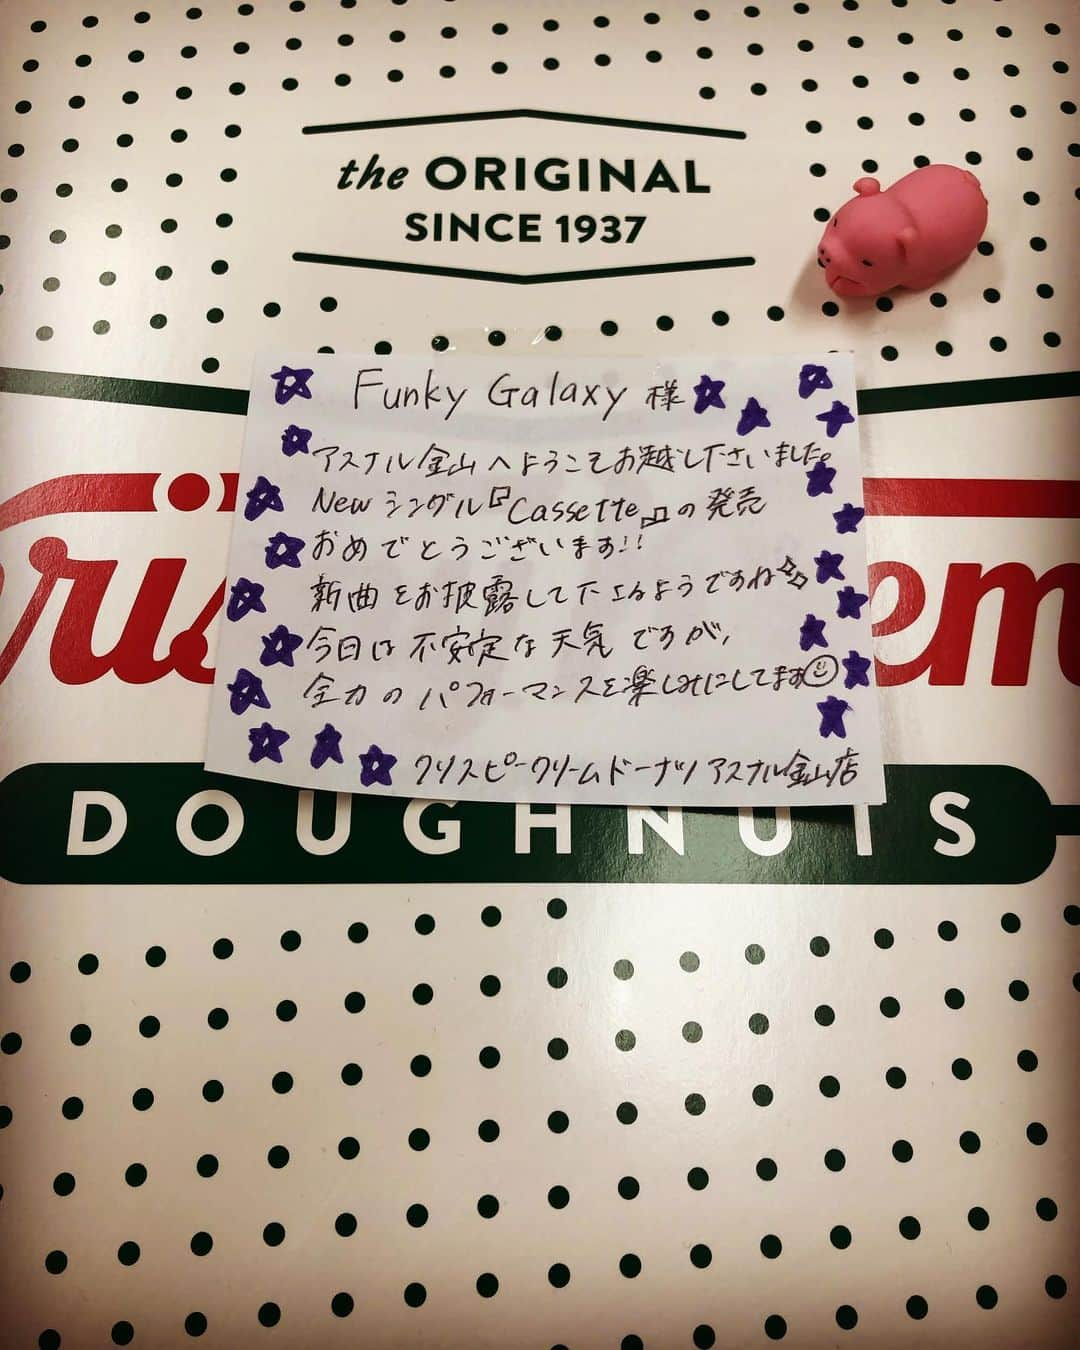 the ORIGINAL
SINCE 1937
Funky Galaxy 様
アスナル金山へようこそお越し下さいました。
Newシングル『Cassette』の発売
おめでとうございます!!
新曲をお披露して下さるようですね
今日は不安定な天気ですが、
全力のパフォーマンスを楽しみにしてます
クリスピークリームドーナツ アスナル金山店
ris em
DOUGHNUTS